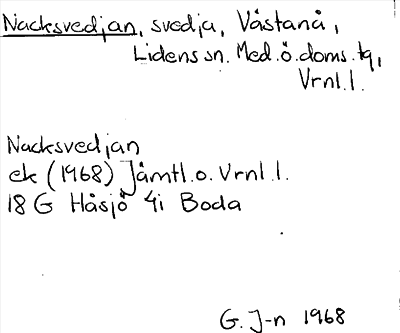 Nacksvedjan, svedja, Västanå,
Lidens sn. Med.ö.doms.tg,
Vrnl.l.
Nacksvedjan
ek (1968) Jämtl.o.Vrnl.l.
18 G Håsjö 4i Boda
G. J-n 1968